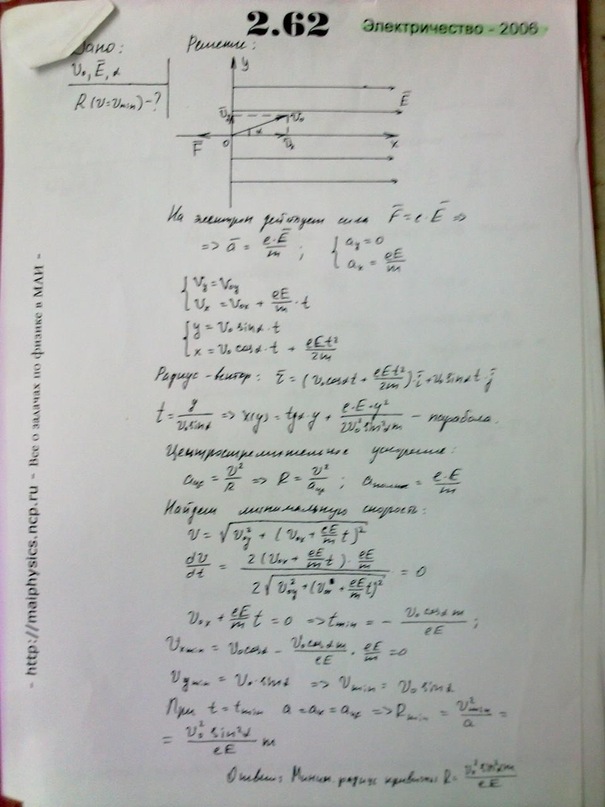 2.62
Электричество - 2006
Дано: Решение:
v₀, Ē, α
R(v=vmin) - ?
y
Ē
v̄y v₀
α
F̄ O v̄x x
На электрон действует сила F̄ = e·Ē ⇒
⇒ ā = e·Ē/m ; { ay = 0
ax = eE/m
{ vy = v₀y
vx = v₀x + eE/m · t
{ y = v₀ sinα · t
x = v₀ cosα · t + eEt²/2m
Радиус-вектор: r̄ = (v₀cosαt + eEt²/2m)·ī + v₀sinαt·j̄
t = y/v₀sinα ⇒ x(y) = tgα·y + e·E·y²/2v₀²sin²αm - парабола.
Центростремительное ускорение:
aцс = v²/R ⇒ R = v²/aцс ; aполн = e·E/m
Найдем минимальную скорость:
v = √(v₀y² + (v₀x + eE/m t)²)
dv/dt = 2(v₀x + eE/m t)·eE/m / 2√(v₀y² + (v₀x + eE/m t)²) = 0
v₀x + eE/m t = 0 ⇒ tmin = - v₀cosαm/eE ;
vxmin = v₀cosα - v₀cosαm/eE · eE/m = 0
vymin = v₀·sinα ⇒ vmin = v₀sinα
При t = tmin a = ax = aцс ⇒ Rmin = v²min/a =
= v₀² sin²α/eE m
Ответ: Миним. радиус кривизны R = v₀² sin²αm/eE
- http://maiphysics.ncp.ru - Все о задачах по физике в МАИ -